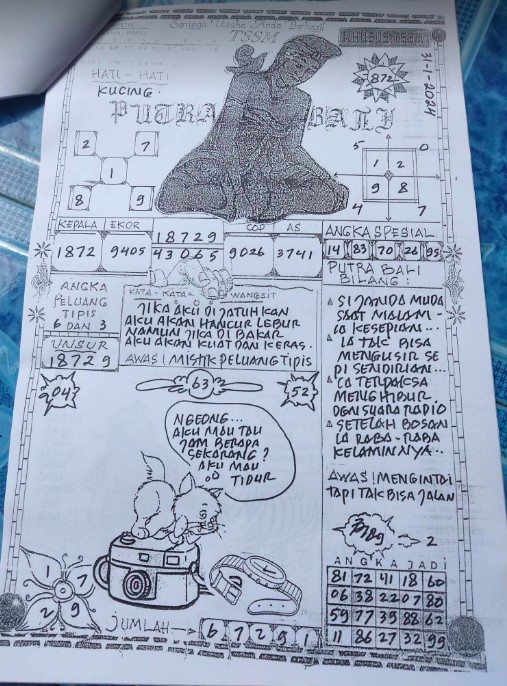 Semoga Usaha Anda Berhasil
TSSM
31-1-2024
HATI - HATI
KUCING.
872
PUTRA BALI
2 7
1
8 9
5 0
1 2
9 8
4 7
KEPALA EKOR COP AS
1872 9405 18729 9026 3741
43065
ANGKA SPESIAL
14 83 70 26 95
PUTRA BALI
BILANG :
ANGKA
PELUANG
TIPIS
6 DAN 3
UNSUR
18729
KATA - KATA - WANGSIT
JIKA AKU DI JATUHKAN
AKU AKAN HANCUR LEBUR
NAMUN JIKA DI BAKAR
AKU AKAN KUAT DAN KERAS.
AWAS! MISTIK PELUANG TIPIS
SI JANDA MUDA
SAAT MALAM -
IA KESEPIAN...
IA TAK BISA
MENGUSIR SE
PI SENDIRIAN...
IA TERPAKSA
MENGHIBUR
DGN SUARA RADIO
SETELAH BOSAN
IA RABA - RABA
KELAMINNYA..
AWAS! MENGINTAI
TAPI TAK BISA JALAN
204
63
52
NGEONG...
AKU MAU TAU
JAM BERAPA
SEKARANG?
AKU MAU
TIDUR
2
ANGKA JADI
81 72 41 18 60
06 38 22 07 80
59 77 39 88 62
11 86 27 32 99
1 7
2 9
JUMLAH → 6 7 2 9 1